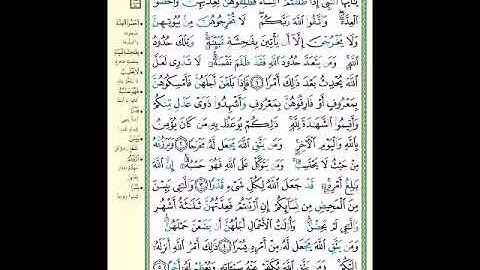 يَٰٓأَيُّهَا ٱلنَّبِىُّ إِذَا طَلَّقْتُمُ ٱلنِّسَآءَ فَطَلِّقُوهُنَّ لِعِدَّتِهِنَّ وَأَحْصُوا۟
ٱلْعِدَّةَ وَٱتَّقُوا۟ ٱللَّهَ رَبَّكُمْ لَا تُخْرِجُوهُنَّ مِنۢ بُيُوتِهِنَّ
وَلَا يَخْرُجْنَ إِلَّآ أَن يَأْتِينَ بِفَٰحِشَةٍ مُّبَيِّنَةٍ وَتِلْكَ حُدُودُ
ٱللَّهِ وَمَن يَتَعَدَّ حُدُودَ ٱللَّهِ فَقَدْ ظَلَمَ نَفْسَهُۥ لَا تَدْرِى لَعَلَّ
ٱللَّهَ يُحْدِثُ بَعْدَ ذَٰلِكَ أَمْرًا ١ فَإِذَا بَلَغْنَ أَجَلَهُنَّ فَأَمْسِكُوهُنَّ
بِمَعْرُوفٍ أَوْ فَارِقُوهُنَّ بِمَعْرُوفٍ وَأَشْهِدُوا۟ ذَوَىْ عَدْلٍ مِّنكُمْ
وَأَقِيمُوا۟ ٱلشَّهَٰدَةَ لِلَّهِ ذَٰلِكُمْ يُوعَظُ بِهِۦ مَن كَانَ يُؤْمِنُ
بِٱللَّهِ وَٱلْيَوْمِ ٱلْءَاخِرِ وَمَن يَتَّقِ ٱللَّهَ يَجْعَل لَّهُۥ مَخْرَجًا ٢ وَيَرْزُقْهُ
مِنْ حَيْثُ لَا يَحْتَسِبُ وَمَن يَتَوَكَّلْ عَلَى ٱللَّهِ فَهُوَ حَسْبُهُۥٓ إِنَّ ٱللَّهَ
بَٰلِغُ أَمْرِهِۦ قَدْ جَعَلَ ٱللَّهُ لِكُلِّ شَىْءٍ قَدْرًا ٣ وَٱلَّٰٓـِٔى يَئِسْنَ
مِنَ ٱلْمَحِيضِ مِن نِّسَآئِكُمْ إِنِ ٱرْتَبْتُمْ فَعِدَّتُهُنَّ ثَلَٰثَةُ أَشْهُرٍ
وَٱلَّٰٓـِٔى لَمْ يَحِضْنَ وَأُو۟لَٰتُ ٱلْأَحْمَالِ أَجَلُهُنَّ أَن يَضَعْنَ حَمْلَهُنَّ
وَمَن يَتَّقِ ٱللَّهَ يَجْعَل لَّهُۥ مِنْ أَمْرِهِۦ يُسْرًا ٤ ذَٰلِكَ أَمْرُ ٱللَّهِ أَنزَلَهُۥٓ
إِلَيْكُمْ وَمَن يَتَّقِ ٱللَّهَ يُكَفِّرْ عَنْهُ سَيِّـَٔاتِهِۦ وَيُعْظِمْ لَهُۥٓ أَجْرًا ٥